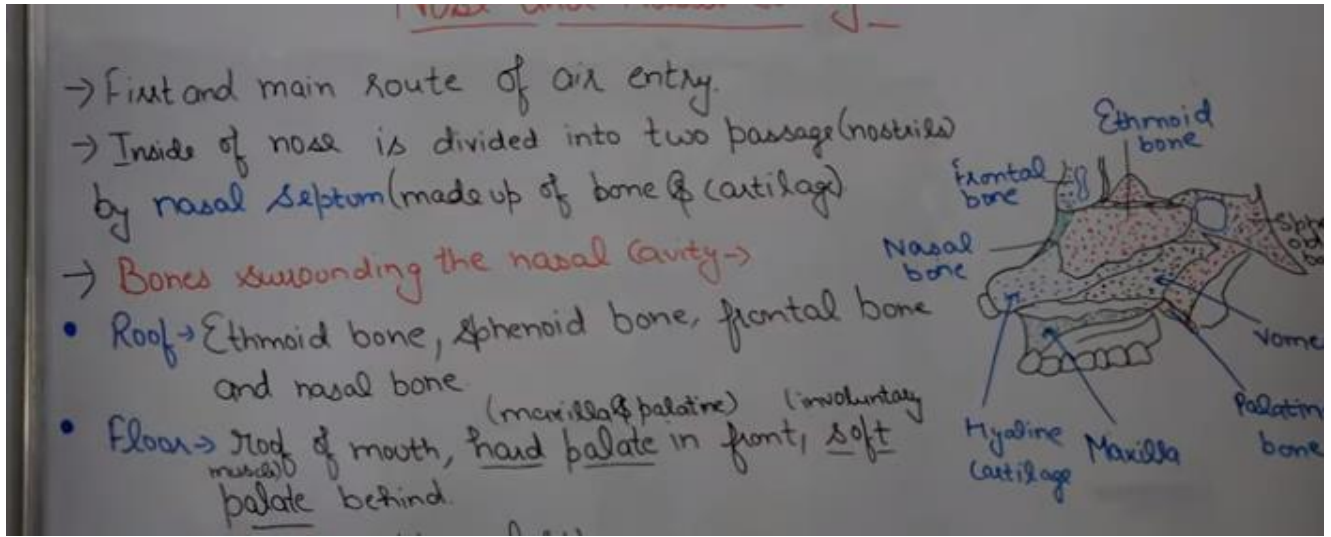 Nose and Nasal Cavity
→ First and main route of air entry.
→ Inside of nose is divided into two passage (nostrils)
by nasal septum (made up of bone & cartilage)
→ Bones surrounding the nasal cavity→
• Roof → Ethmoid bone, sphenoid bone, frontal bone
and nasal bone.
(maxilla & palatine) (involuntary
• Floor → roof of mouth, hard palate in front, soft
muscle)
palate behind.
Ethmoid
bone
Frontal
bone
Nasal
bone
Sphe
oid
bo
Vome
Palatin
bone
Hyaline
cartilage
Maxilla